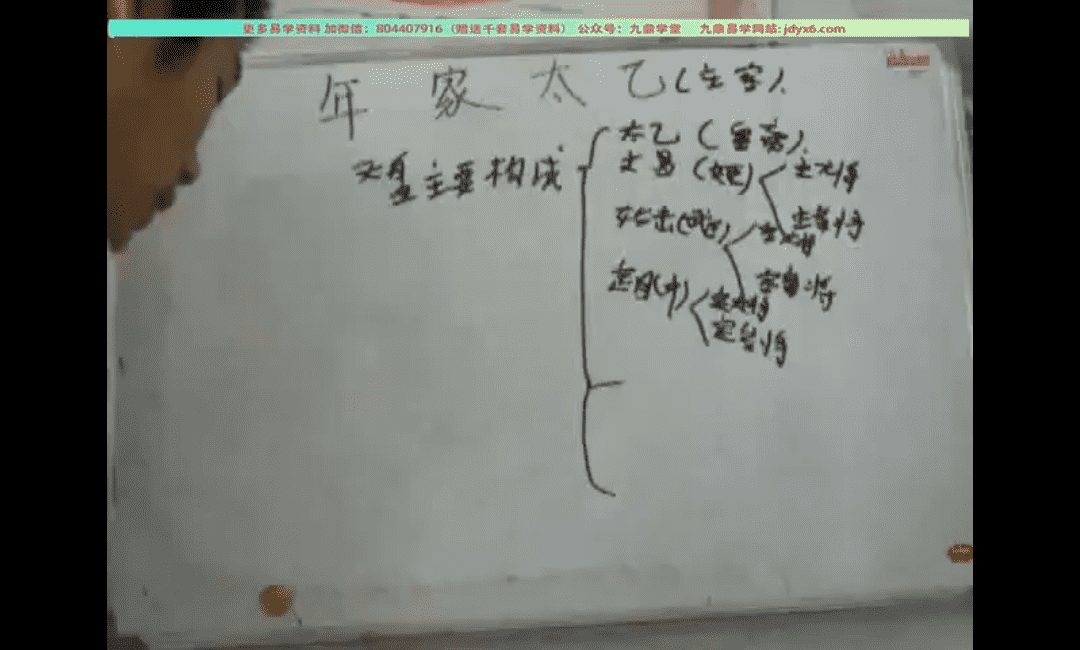 更多易学资料 加微信：804407916（赠送千套易学资料） 公众号：九鼎学堂 九鼎易学网站：jdyx6.com
年家太乙（主客）.
天盘主要构成
太乙（ ）.
文昌（ ）
主大将
主参将
始击（ ）
客大将
客参将
定目（ ）
定大将
定参将